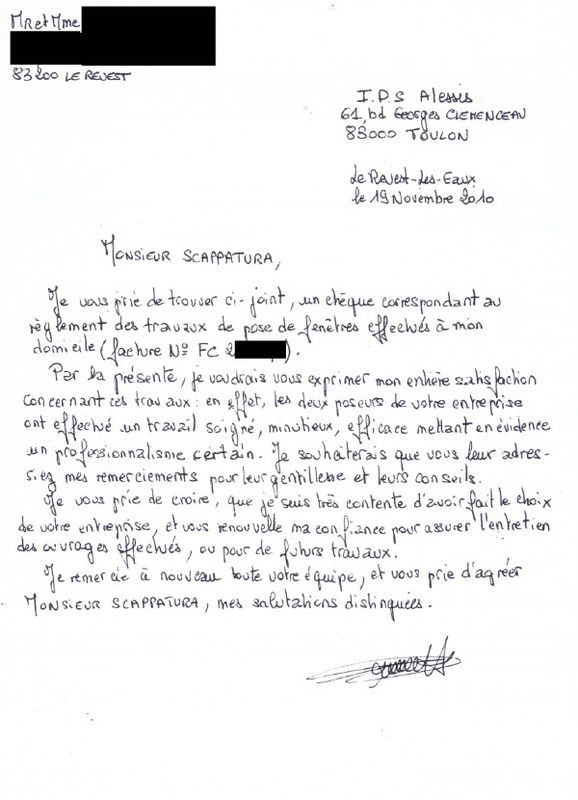 MR et Mme
83200 LE REVEST
I.P.S Alessis
61, bd Georges CLEMENCEAU
83000 TOULON
Le Revest-Les-Eaux
le 19 Novembre 2010
MONSIEUR SCAPPATURA,
Je vous prie de trouver ci-joint, un chèque correspondant au
règlement des travaux de pose de fenêtres effectués à mon
domicile (facture N° FC 2 ).
Par la présente, je voudrais vous exprimer mon entière satisfaction
concernant ces travaux : en effet, les deux poseurs de votre entreprise
ont effectué un travail soigné, minutieux, efficace mettant en évidence
un professionnalisme certain. Je souhaiterais que vous leur adres-
siez mes remerciements pour leur gentillesse et leurs conseils.
Je vous prie de croire, que je suis très contente d'avoir fait le choix
de votre entreprise, et vous renouvelle ma confiance pour assurer l'entretien
des ouvrages effectués, ou pour de futurs travaux.
Je remercie à nouveau toute votre équipe, et vous prie d'agréer
MONSIEUR SCAPPATURA, mes salutations distinguées.